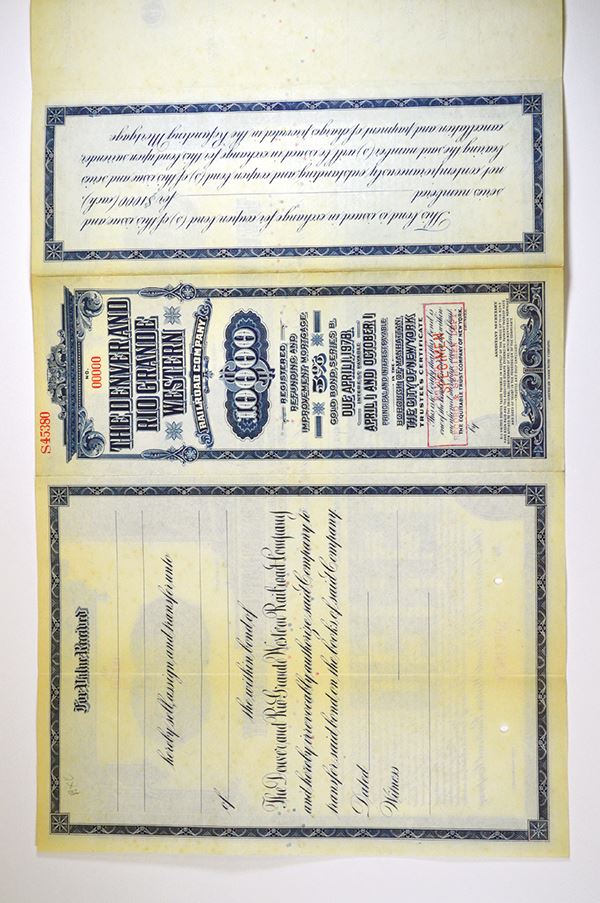 This bond is issued in exchange for coupon bond(s) of this issue and
series numbered for $1000 each,
not contemporaneously outstanding and coupon bond(s) of this issue and series
bearing the said number(s) will be issued in exchange for this bond upon surrender,
cancellation and payment of charges provided in the Refunding Mortgage
S45380
NO.
00000
THE DENVER AND
RIO GRANDE
WESTERN
RAILROAD COMPANY
$10000
REGISTERED
REFUNDING AND
IMPROVEMENT MORTGAGE
5%
GOLD BOND SERIES B.
DUE APRIL 1, 1978.
INTEREST PAYABLE
APRIL 1 AND OCTOBER 1
PRINCIPAL AND INTEREST PAYABLE
IN THE
BOROUGH OF MANHATTAN,
THE CITY OF NEW YORK
TRUSTEE'S CERTIFICATE
SPECIMEN
THE EQUITABLE TRUST COMPANY OF NEW YORK,
by
For Value Received
hereby sell, assign and transfer unto
the within bond of
The Denver and Rio Grande Western Railroad Company
and hereby irrevocably authorize said Company to
transfer said bond on the books of said Company.
Dated
Witness